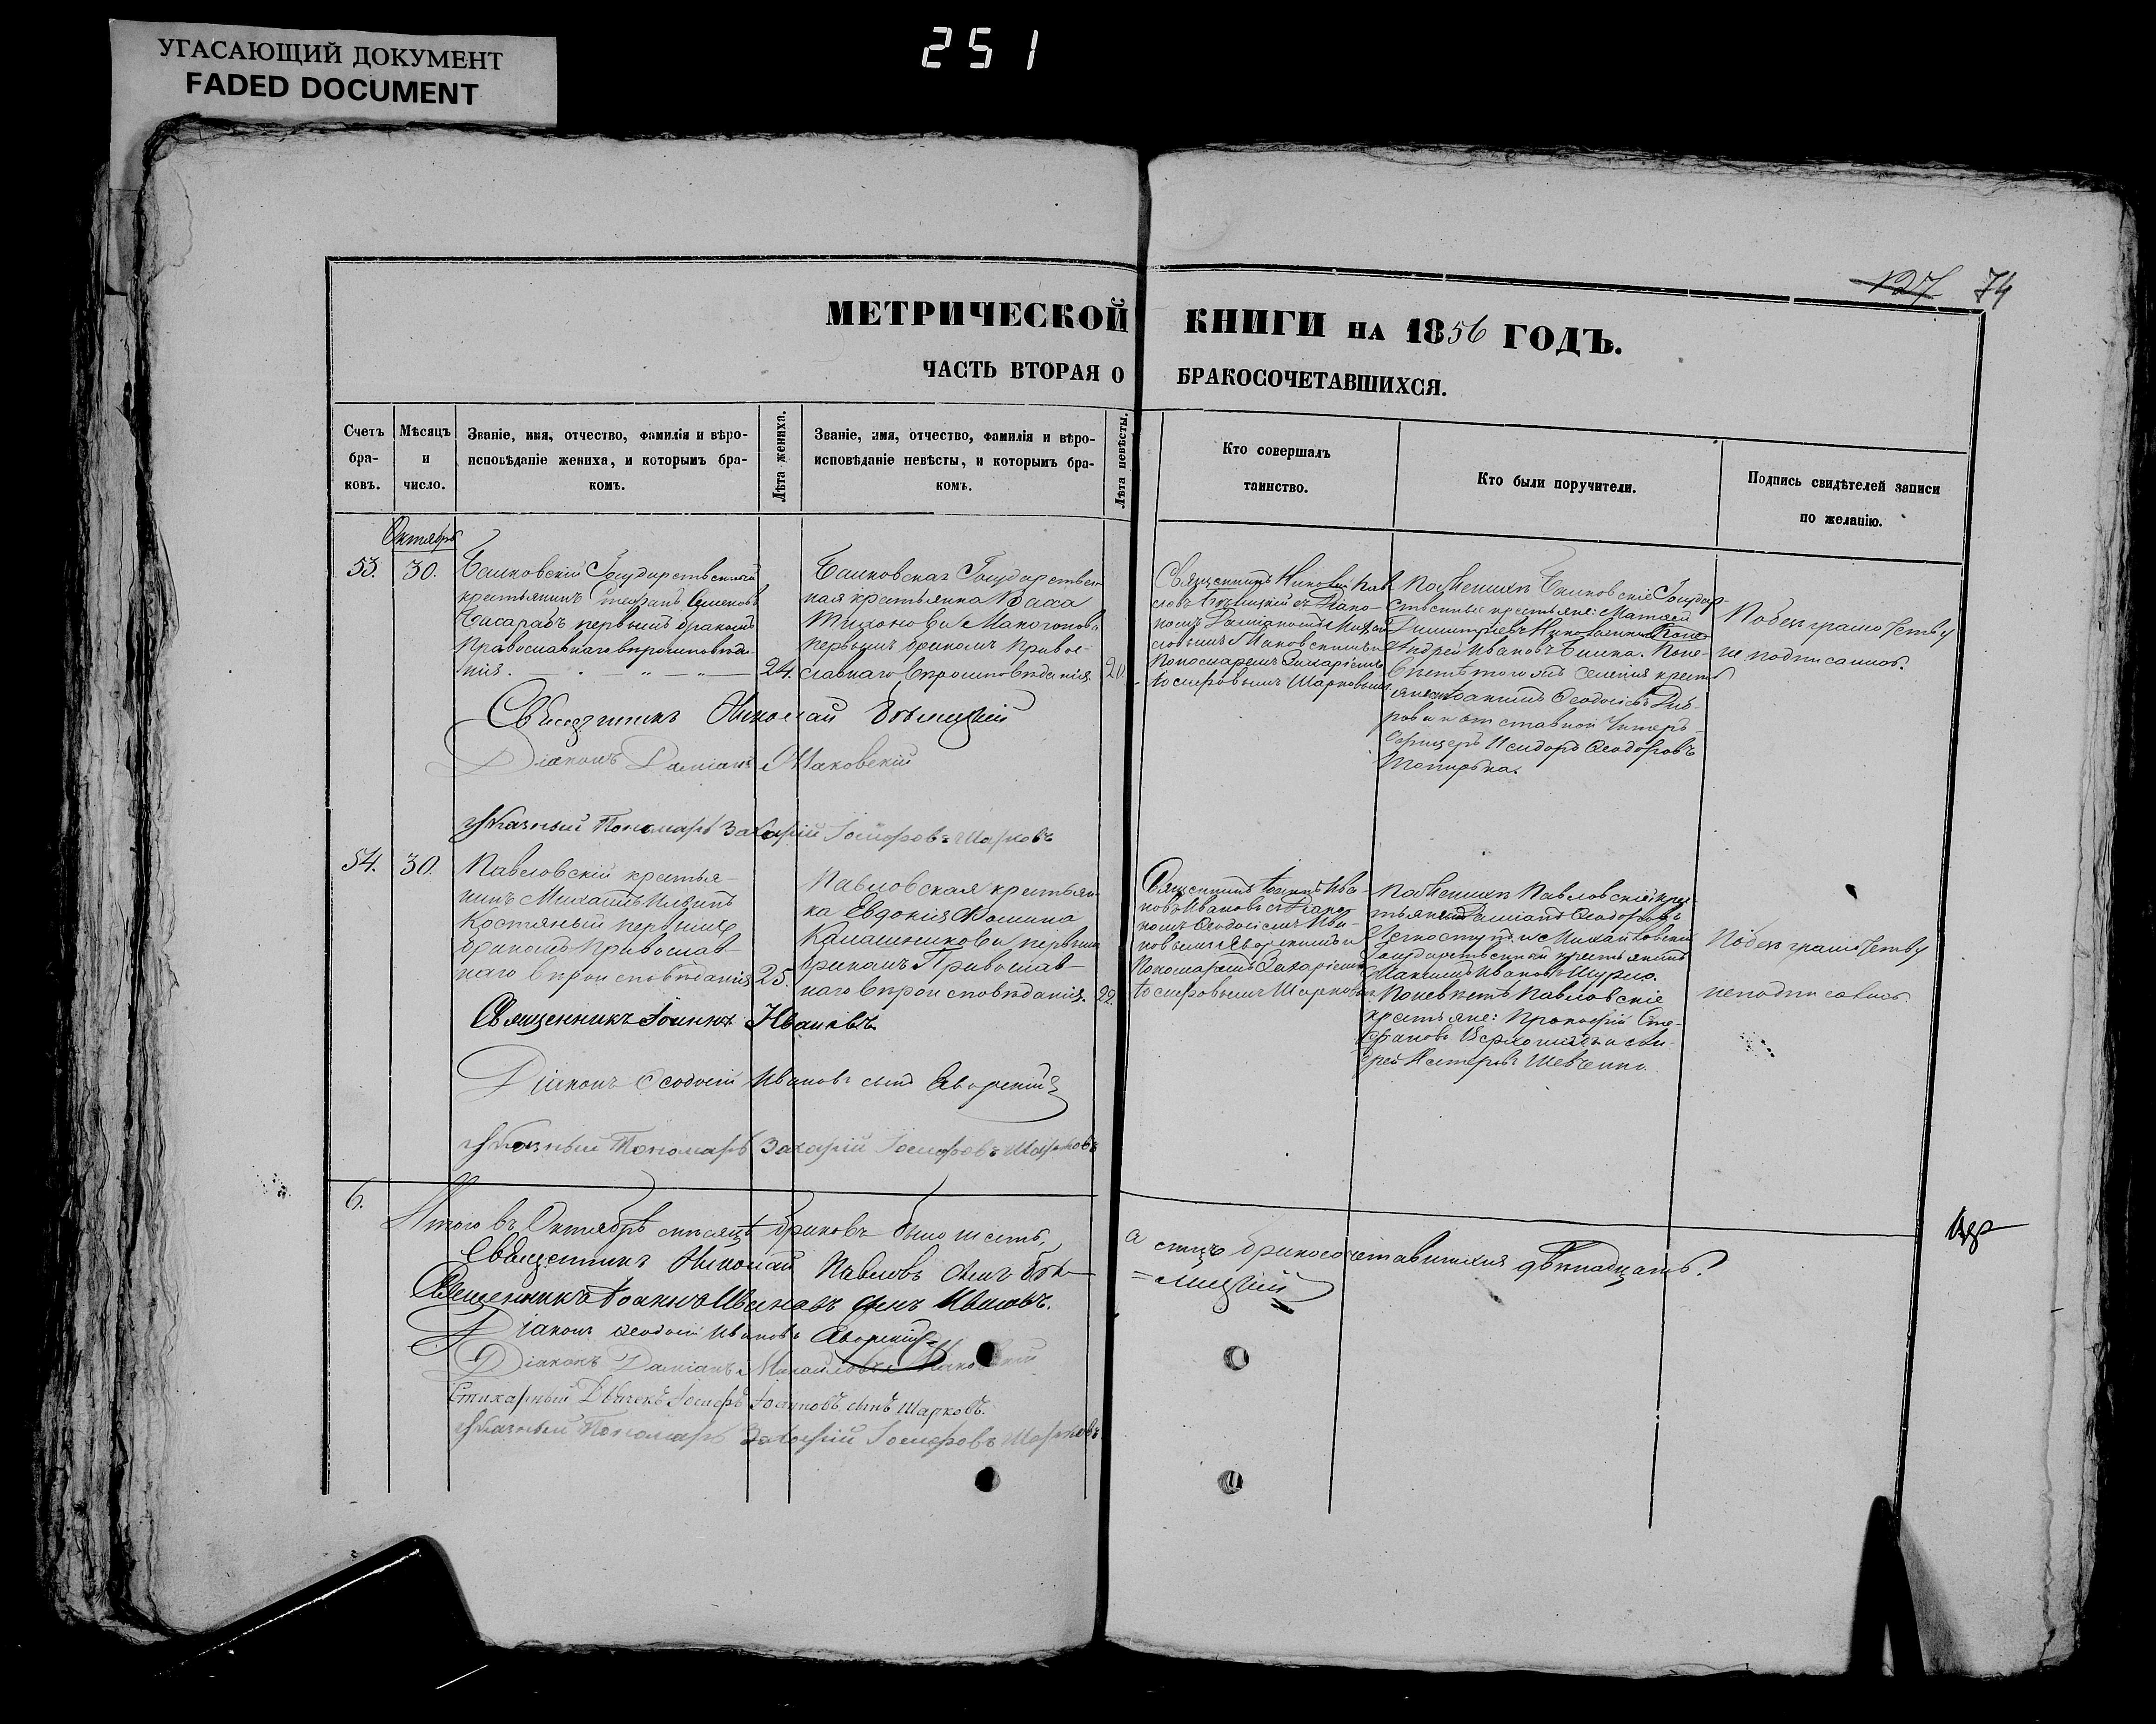 УГАСАЮЩИЙ ДОКУМЕНТ
FADED DOCUMENT
251
127 74
МЕТРИЧЕСКОЙ КНИГИ НА 1856 ГОДЪ.
ЧАСТЬ ВТОРАЯ О БРАКОСОЧЕТАВШИХСЯ.
Счетъ бра- ковъ.
Мѣсяцъ и число.
Званіе, имя, отчество, фамилія и вѣро-
исповѣданіе жениха, и которымъ бра-
комъ.
Лѣта жениха.
Званіе, имя, отчество, фамилія и вѣро-
исповѣданіе невѣсты, и которымъ бра-
комъ.
Лѣта невѣсты.
Кто совершалъ
таинство.
Кто были поручители.
Подпись свидѣтелей записи
по желанію.
Октябрь
53. 30.
Балковскій Государственный
крестьянинъ Стефанъ Семеновъ
первымъ бракомъ
Православнаго вѣроисповѣда-
нія.
24.
Балковская Государствен-
ная крестьянка Васса
Тихонова Макогонова
первымъ бракомъ Право-
славнаго вѣроисповѣданія.
20.
Священникъ Николай Пав-
ловъ Бѣлицкій съ Діако-
номъ Даміаномъ Михай-
ловымъ Маковскимъ и
Пономаремъ Захаріемъ
Іосифовымъ Шарковымъ
По женихѣ Балковскіе Государ-
ственные крестьяне: Матѳей
Димитріевъ
Андрей Ивановъ Поне-
вѣстѣ того жъ селенія крестья-
не Іоакимъ Ѳеодосіевъ
и отставной Унтеръ-
Офицеръ Исидоръ Ѳеодоровъ
По безграмотству
не подписались.
Священникъ Николай Бѣлицкій
Діаконъ Даміанъ Маковскій
Указный Пономарь Захарій Іосифовъ Шарковъ
54. 30.
Павловскій крестья-
нинъ Михаилъ Ильинъ
Костяный первымъ
бракомъ Православ-
наго вѣроисповѣданія
25.
Павловская крестьян-
ка Евдокія Ѳомина
Калашникова первымъ
бракомъ Православ-
наго вѣроисповѣданія.
22.
Священникъ Іоаннъ Ива-
новъ Ивановъ съ Діако-
номъ Ѳеодосіемъ Ива-
новымъ Яворскимъ и
Пономаремъ Захаріемъ
Іосифовымъ Шарковымъ
По женихѣ Павловскій кре-
стьянинъ Даміанъ Ѳеодоровъ
и Михайловскій
Государственный крестьянинъ
Максимъ Ивановъ Шурло.
По невѣстѣ Павловскіе
крестьяне: Прокофій Сте-
фановъ и Ан-
дрей Нестеровъ Шевченко
По безграмотству
не подписались.
Священникъ Іоаннъ Ивановъ
Діаконъ Ѳеодосій Ивановъ сынъ Яворскій
Указный Пономарь Захарій Іосифовъ Шарковъ
6.
Итого въ Октябрѣ мѣсяцѣ браковъ было шесть,
а лицъ бракосочетавшихся двѣнадцать.
Священникъ Николай Павловъ сынъ Бѣ-
=лицкій
Священникъ Іоаннъ Ивановъ сынъ Ивановъ.
Діаконъ Ѳеодосій Ивановъ Яворскій
Діаконъ Даміанъ Михайловъ Маковскій
Стихарный Дьячекъ Іосифъ Іоанновъ сынъ Шарковъ.
Указный Пономарь Захарій Іосифовъ Шарковъ